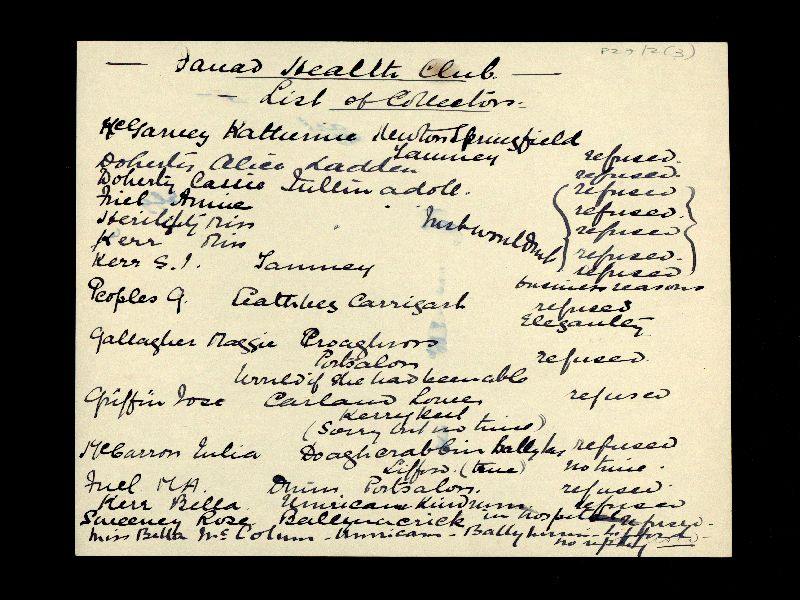 P27/2(3)
— Fanad Health Club. —
- List of Collectors.
McGarvey Katherine Newton Springfield
Tamney refused.
Doherty Alice Ladden refused.
Doherty Cassie Tullinadoll. refused
Friel Annie refused.
Heritety Miss Just wouldn't refused
Kerr Miss refused.
Kerr S.J. Tamney refused
business reasons
Peoples G. Gatthbeg Carrigart refused
Elegantly
Gallagher Maggie Croaghross
Portsalon refused.
Would if she had been able
Griffin Jose Carland Lower refused
Kerrykeel
(Sorry but no time)
McCarron Julia Doaghcrabbin refused
(true) no time.
Friel M.A. Drum Portsalon. refused.
Kerr Bella. Umricam Kindrum refused
Sweeney Rose. Ballynacrick in hospital refused.
Miss Bella McColum - Umricam - Ballyhiernan -
no reply